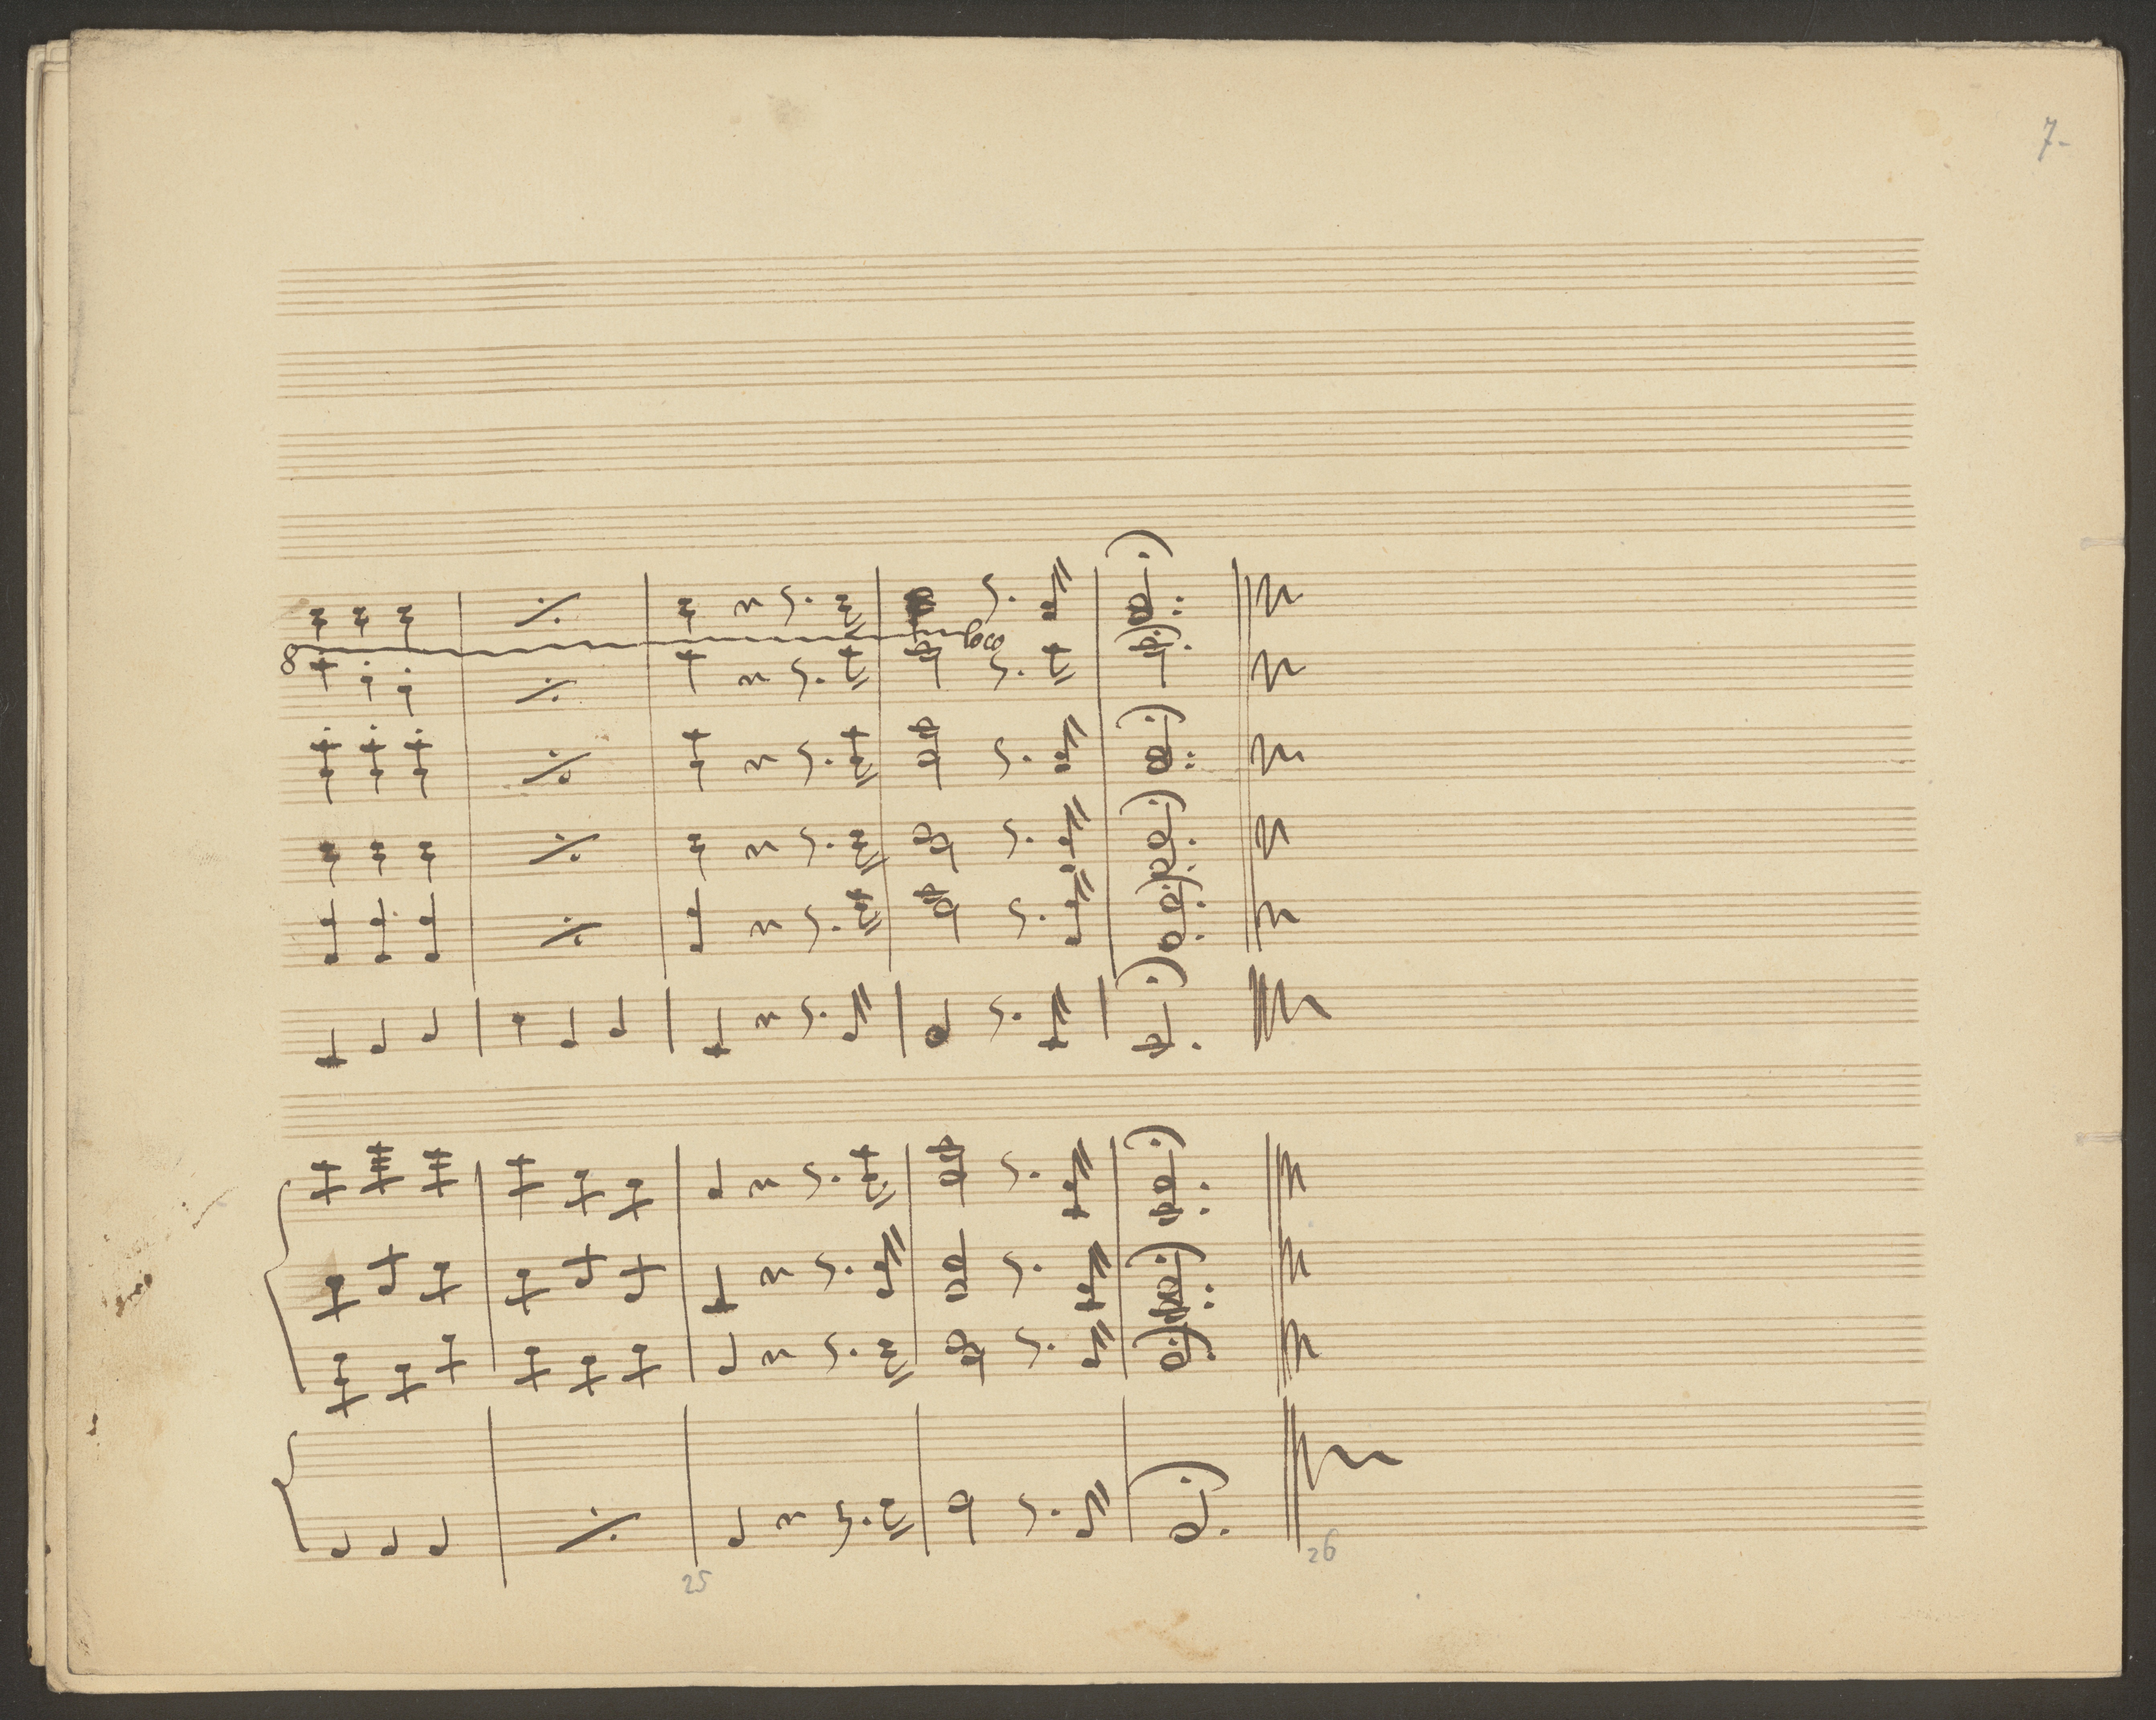 7.
loco
8
25
26